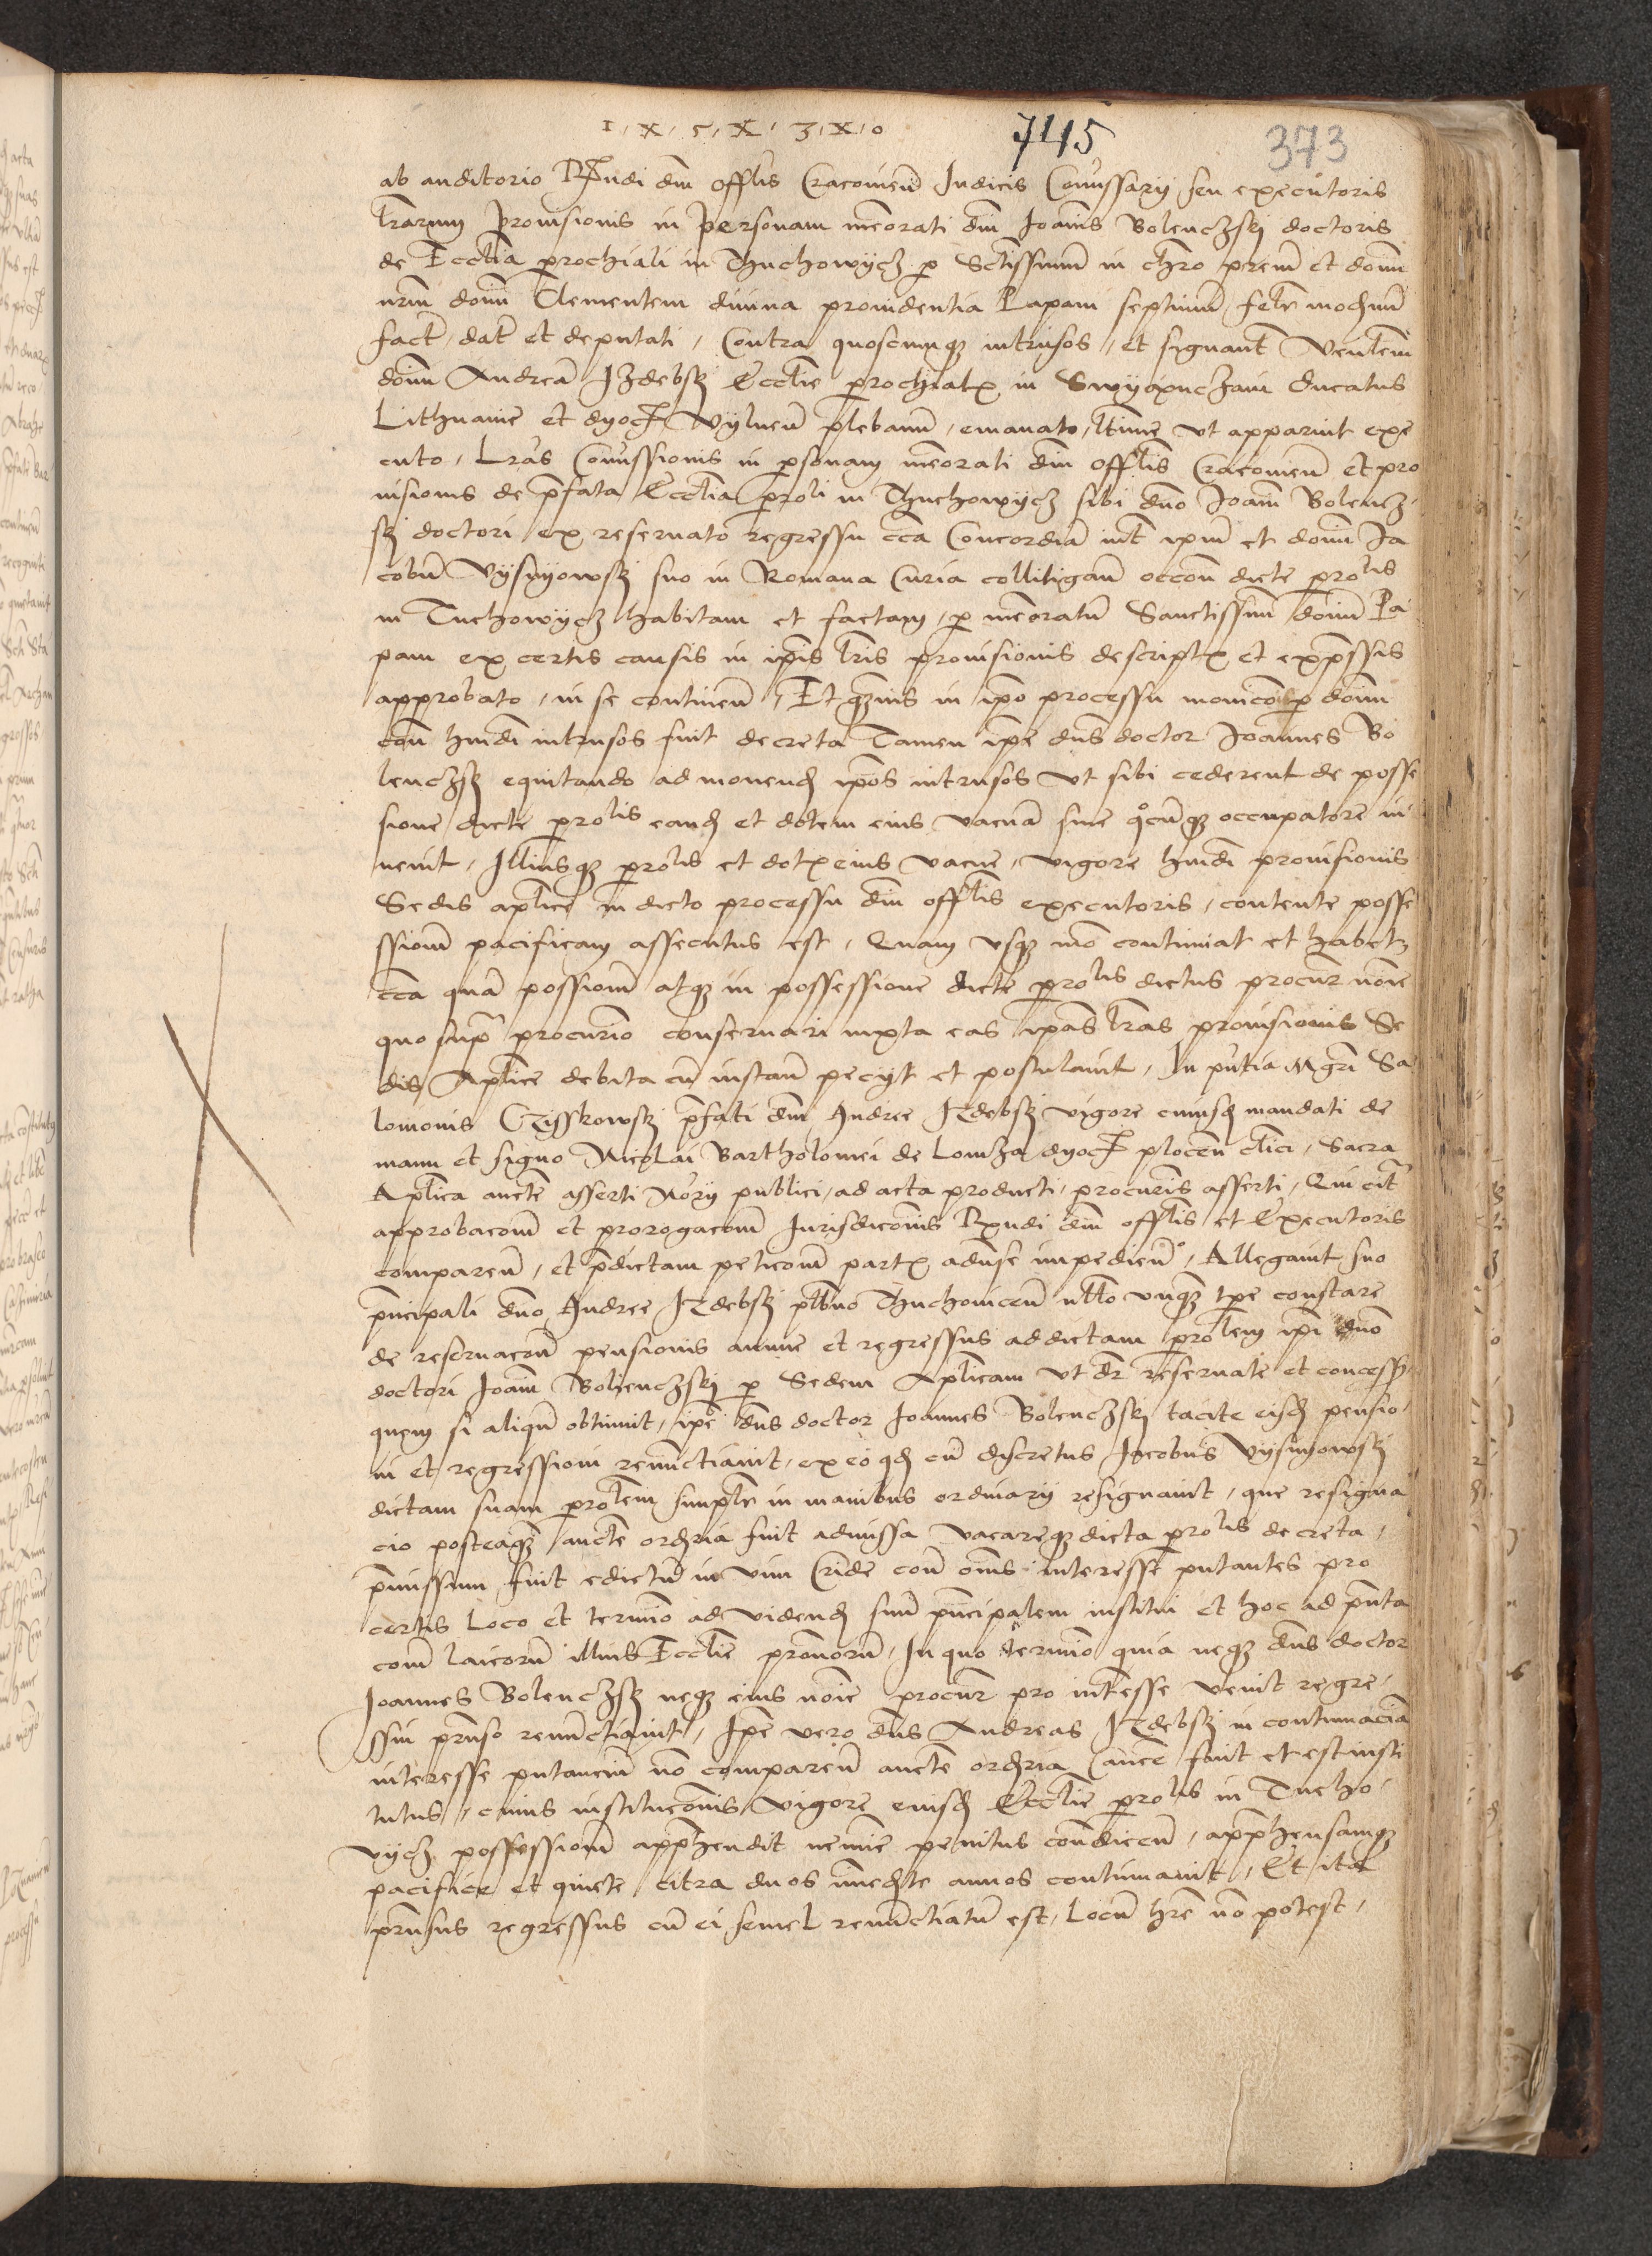 1 · X · 5 · X · 3 · X · 0
745
373
ab auditorio Rndi dni offlis Cracovien Iudicis Comissarij seu executoris
lrarum provisionis in personam meorati dni Joannis Bolenczskj doctoris
de Ecclia prochiali in Thuchowycz p Sctissimum in chro prem et dom
nrm dnm Clementem divina providentia Papam septimu felr modernu
fact dat et deputati, Contra quoscunq intrusos, et signant Venlem
dnm Andrea Izdebskj Ecclie prochialis in ducatus
Lithuanie et dyoc Vylnen plebanu, emanato, ltime ut apparuit exe
cuto, lras Comissionis in psonam meorati dni offlis Cracovien et pro
visionis de pfata Ecclia proli in Thuchowycz sibi dno Joanni Bolencz
skj doctori ex reservato regressu cca Concordia int ipm et dnm Ja
cobu Vysnyowskj suo in Romana Curia collitigan occon dicte prolis
in Tuchowycz habitam et factam, p meoratu Sanctissimu dnm Pa
pam ex certis causis in ipis lris provisionis descriptis et expssis
approbato, in se continen, Et qzvis in ipo processu monico p dnm
con hmdi intrusos fuit decreta Tamen ipe dns doctor Joannes Bo
lenczskj equitando ad monend ipos intrusos ut sibi cederent de posse
sione dicte prolis eand et dotem eius vacua sine qocunq occupatore in
venit, Illiusq prolis et dotis eius vacue, vigore hmdi provisionis
Sedis aplice in dicto processu dni offlis executoris, contente posse
ssionem pacificam assecutus est, Quam usq mo continuat et habet,
cca qua possionem atq in possessione dicte prolis dictus procur noie
quo supra procurio conservari iuxta eas ipas lras provisionis Se
dis Aplice debita cu instan pecijt et postulavit, In pntia Mgri Sa
lomonis Czisskowskj pfati dni Andree Izdebskj vigore cuiusd mandati de
manu et signo Nicolai Bartholomei de Lomza dyoc plocen clici, Sacra
Aplica aucte asserti Norij publici, ad acta producti, procuris asserti, Qui cit
approbacom et prorogacom Iurisdiconis Rndi dni offlis et Executoris
comparen, et pdictam peticom partis adverse impedien, Allegavit suo
pncipali dno Andree Izdebskj plbno Thuchovicen nllo unq tpe constare
de reservacon pensionis annue et regressus ad dictam prolem ipi dno
doctori Joanni Bolenczskj p Sedem Aplicam ut dr reservate et concess
quem si aliqu obtinuit, ipe dns doctor Joannes Bolenczskj tacite eisd pensio
ni et regressioni renuctiavit, ex eo qd cu discretus Jacobus Vysnyowskj
dictam suam prolem simplr in manibus ordinarij resignavit, que resigna
cio posteaq aucte ordria fuit admissa vacareq dicta prolis decreta,
pmissum fuit edictu in vim Cride con oms interesse putantes pro
certis loco et termio ad videnд suu pncipalem institui et hoc ad pnta
com laicoru illius Ecclie pronoru, In quo termio quia neq dns doctor
Joannes Bolenczskj neq eius noie procur pro intesse venit regre
ssui pnso renuctiavit, Ipe vero dns Andreas Izdebskj in contumacia
interesse putanciu no comparen aucte ordria fuit et est insti
tutus, cuius instituconis vigore eiusd Ecclie prolis in Tucho
vycz possessionem apphendit nemie penitus condicen, apphensamq
pacifice et quiete citra duos imediate annos continuavit, Et ita
pnsus regressus cu ei semel renuctiatu est, locu hre no potest,